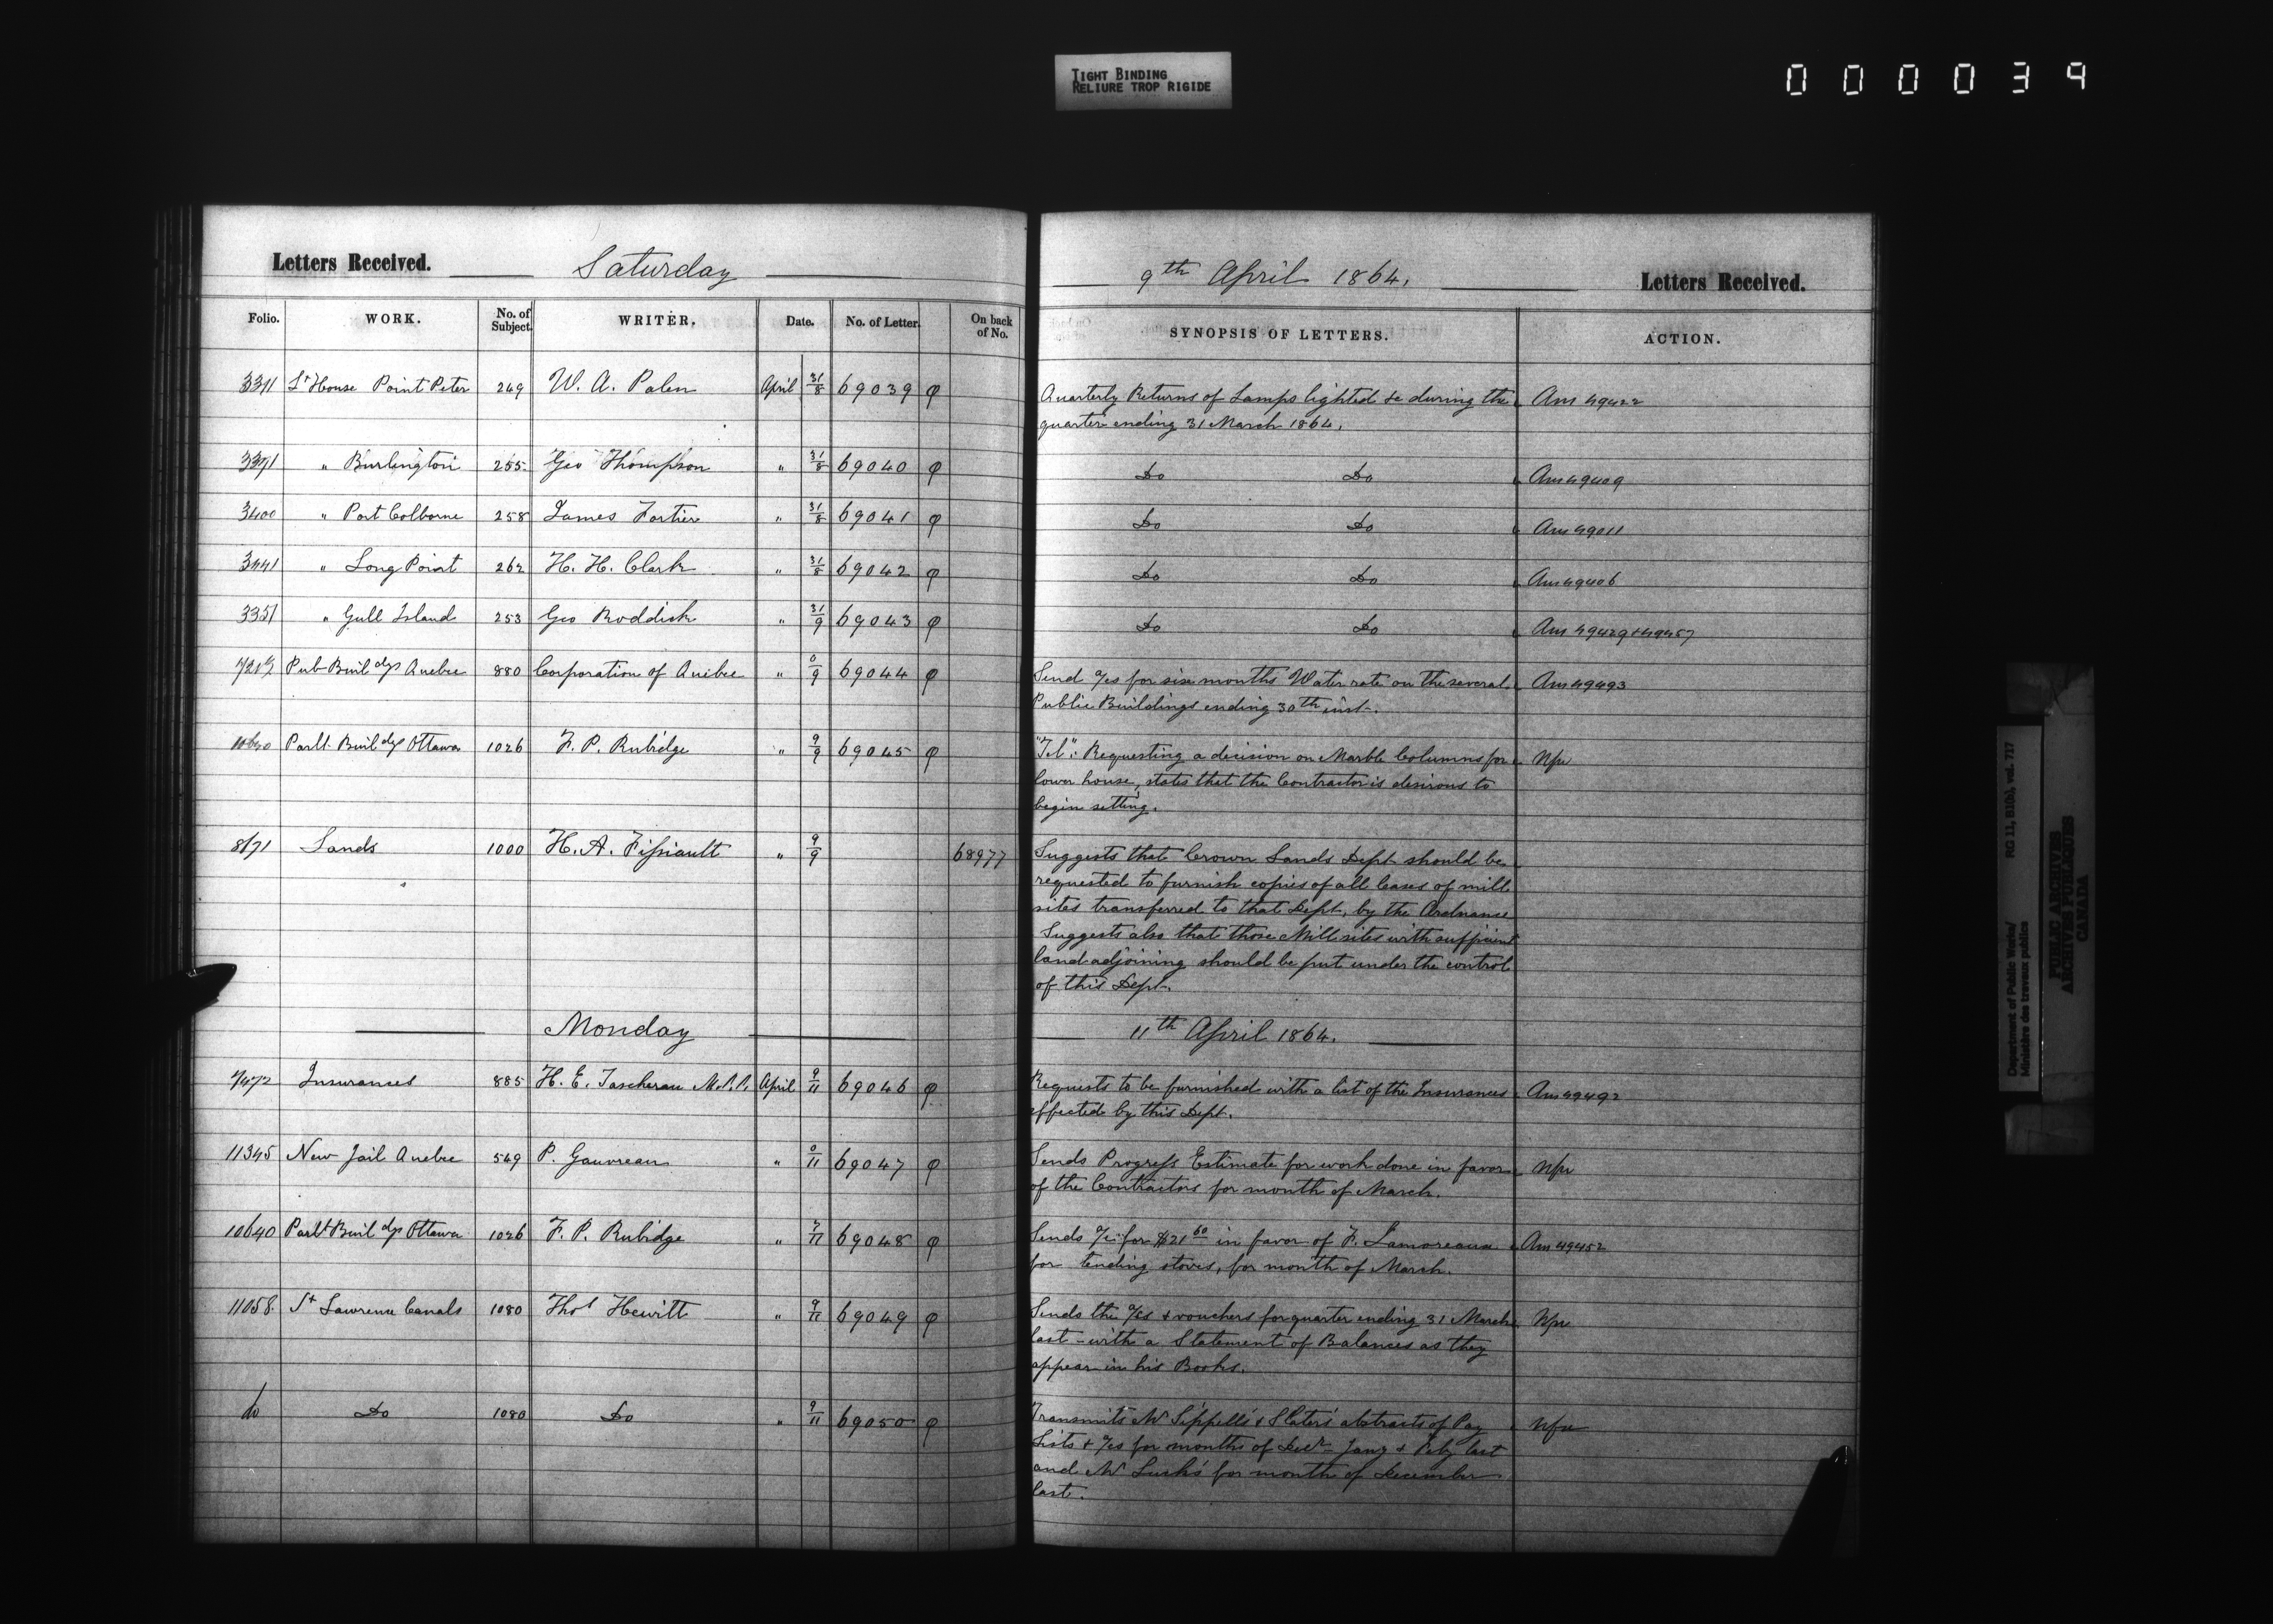 TIGHT BINDING
RELIURE TROP RIGIDE
000039
Letters Received. Saturday 9th April 1864. Letters Received.
Folio. WORK. No. of Subject. WRITER. Date. No. of Letter. On back of No. SYNOPSIS OF LETTERS. ACTION.
3311 Lt House Point Peter 249 W. A. Palen April 31/8 69039 φ Quarterly Returns of Lamps lighted &c during the Ans 49422
quarter ending 31 March 1864.
3371 " Burlington 255 Geo Thompson " 31/8 69040 φ Do Do Ans 49409
3400 " Port Colborne 258 James Fortier " 31/8 69041 φ Do Do Ans 49011
3441 " Long Point 262 H. H. Clark " 31/8 69042 φ Do Do Ans 49406
3351 " Gull Island 253 Geo Roddick " 31/9 69043 φ Do Do Ans 49429 + 49457
Pub Buildgs Quebec 880 Corporation of Quebec " 0/9 69044 φ Send a/cs for six months Water rate on the several Ans 49493
Public Buildings ending 30th inst.
10640 Parlt Buildgs Ottawa 1026 F. P. Rubidge " 9/9 69045 φ "Tel": Requesting a decision on Marble Columns for Nfu
lower house, states that the Contractor is desirous to
begin setting.
8171 Lands 1000 H. A. Fissiault " 9/9 68977 Suggests that Crown Lands Dept should be
requested to furnish copies of all leases of mill
sites transferred to that Dept. by the Ordnance
Suggests also that those Mill sites with sufficient
land adjoining should be put under the control
of this Dept.
Monday 11th April 1864.
7472 Insurances 885 H. E. Taschereau M.P.P. April 9/11 69046 φ Requests to be furnished with a list of the Insurances Ans 49492
effected by this Dept.
11345 New Jail Quebec 549 P. Gauvreau " 0/11 69047 φ Sends Progress Estimate for work done in favor Nfu
of the Contractors for month of March.
10640 Parlt Buildgs Ottawa 1026 F. P. Rubidge " 7/11 69048 φ Sends a/c for $21 60 in favor of F. Lamoreaux Ans 49452
for tending stoves, for month of March.
11058 St Lawrence Canals 1080 Thos Hewitt " 9/11 69049 φ Sends the a/cs & vouchers for quarter ending 31 March Nfu
last - with a Statement of Balances as they
appear in his Books.
Do Do 1080 Do " 9/11 69050 φ Transmits Mr Sippell's & Slater's abstracts of Pay Nfu
Lists & a/cs for months of Decr - Jany & Feby last
and Mr Lusk's for month of December
last.
Department of Public Works/ RG 11, B1(b), vol. 717
Ministère des travaux publics
PUBLIC ARCHIVES
ARCHIVES PUBLIQUES
CANADA